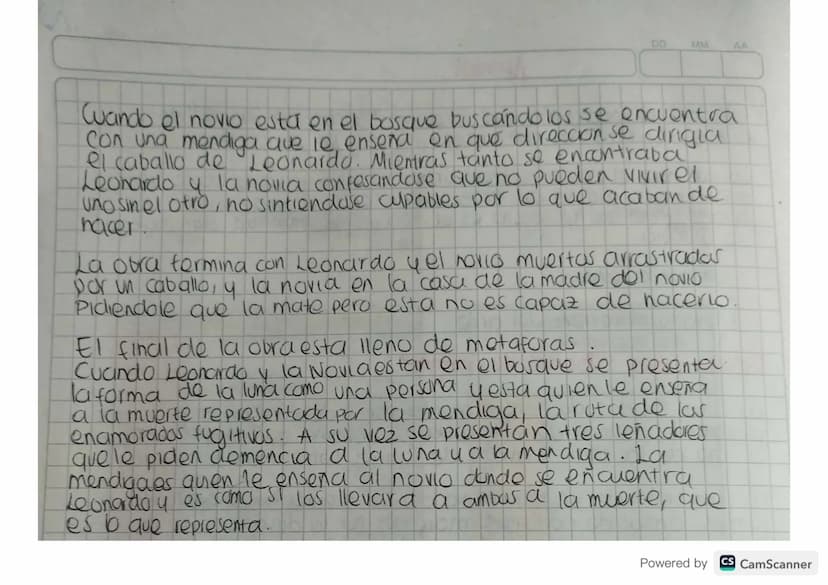 DD MM AA
Cuando el novio esta en el bosque buscandolos se encuentra
con una mendiga que le enseña en que direccion se dirigia
el caballo de Leonardo. Mientras tanto se encontraba
Leonardo y la novia confesandose que no pueden vivir el
uno sin el otro, no sintiendose culpables por lo que acaban de
hacer.
La obra termina con Leonardo y el novio muertos arrastrados
por un caballo, y la novia en la casa de la madre del novio
Pidiendole que la mate pero esta no es capaz de hacerlo.
El final de la obra esta lleno de metaforas.
Cuando Leonardo y la Novia estan en el bosque se presenta
la forma de la luna como una persona y esta quien le enseña
a la muerte representada por la mendiga, la ruta de los
enamorados fugitivos. A su vez se presentan tres leñadores
que le piden demencia a la luna y a la mendiga. La
mendiga es quien le enseña al novio donde se encuentra
Leonardo y es como si los llevara a ambos a la muerte, que
es lo que representa.
Powered by CS CamScanner